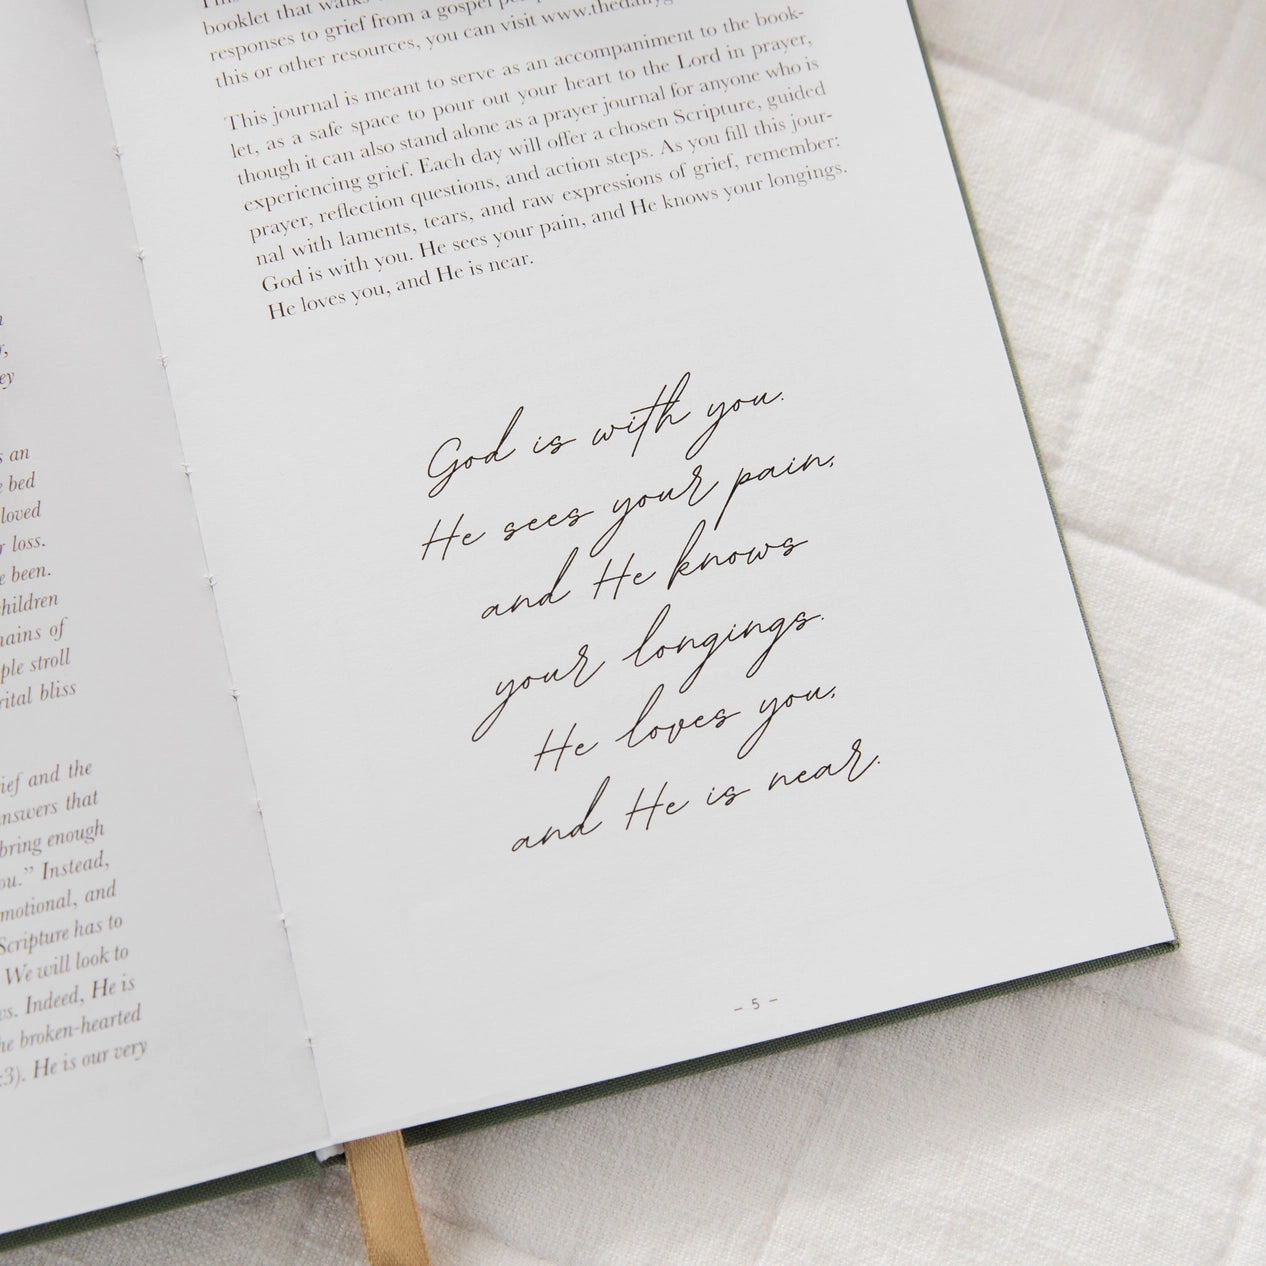 s an
bed
loved
loss.
been.
children
of
stroll
bliss
and the
answers that
bring enough
Instead,
emotional, and
Scripture has to
We will look to
Indeed, He is
broken-hearted
:3). He is our very
booklet that walks
responses to grief from a gospel
this or other resources, you can visit www.thedaily
This journal is meant to serve as an accompaniment to the book-
let, as a safe space to pour out your heart to the Lord in prayer,
though it can also stand alone as a prayer journal for anyone who is
experiencing grief. Each day will offer a chosen Scripture, guided
prayer, reflection questions, and action steps. As you fill this jour-
nal with laments, tears, and raw expressions of grief, remember:
God is with you. He sees your pain, and He knows your longings.
He loves you, and He is near.
God is with you.
He sees your pain,
and He knows
your longings.
He loves you,
and He is near.
– 5 –